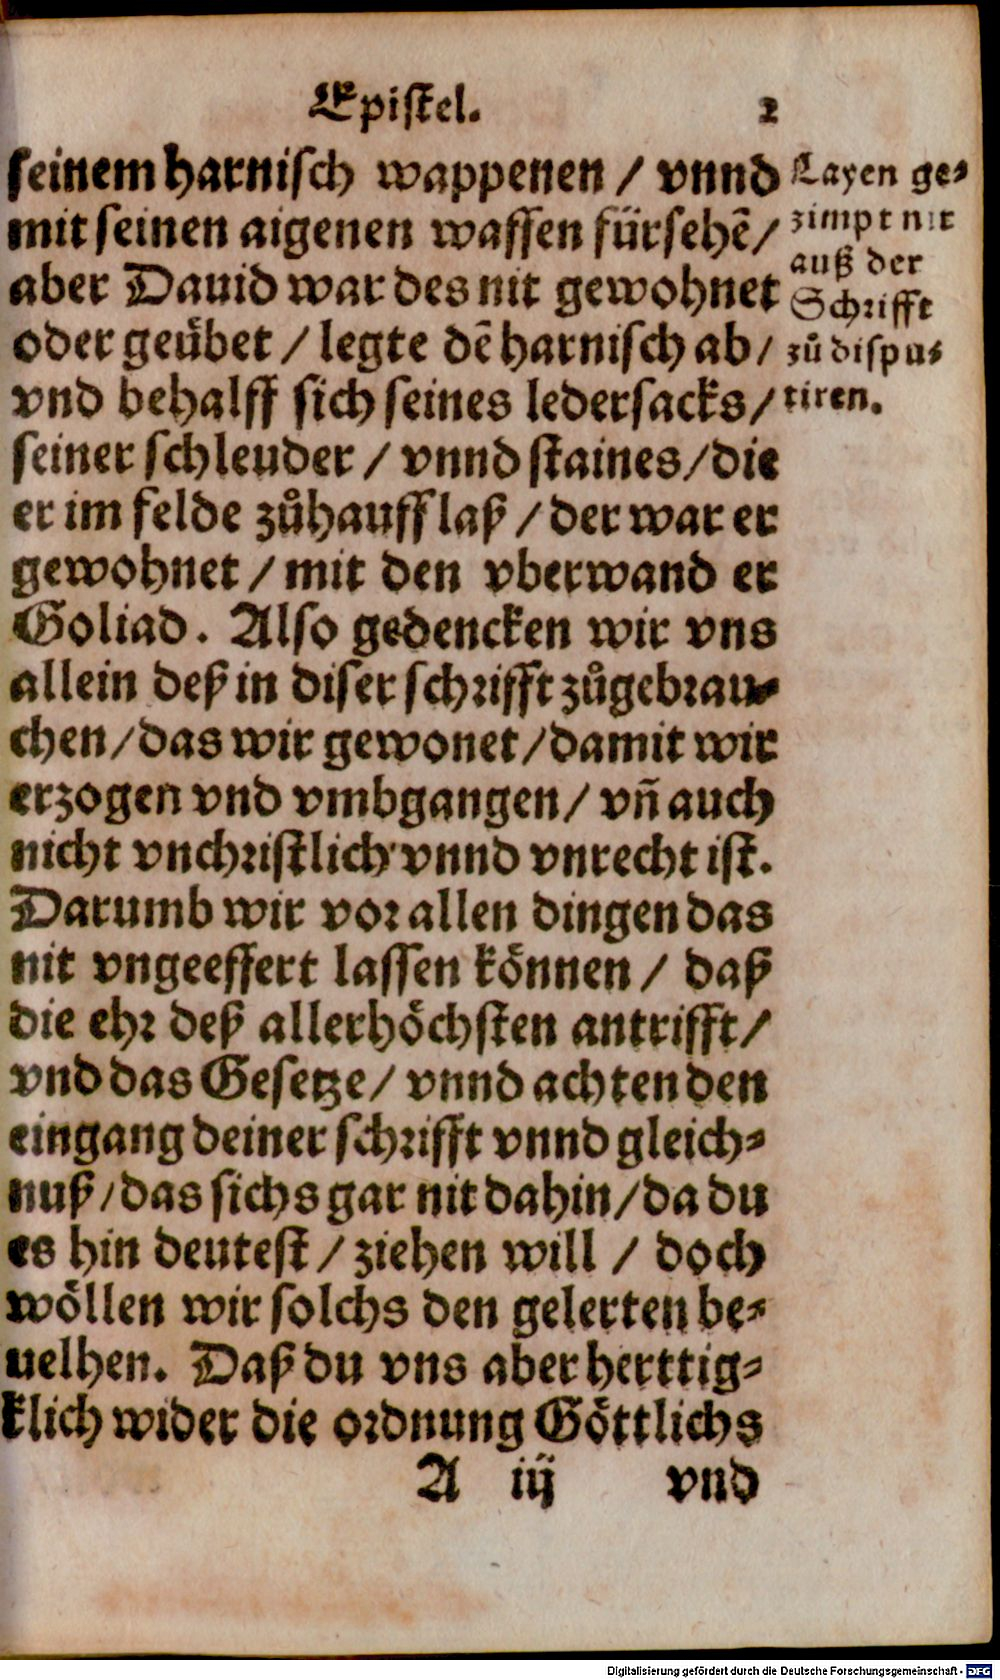 Epistel. 2
seinem harnisch wappenen / vnnd
mit seinen aigenen waffen fürsehẽ /
aber Dauid war des nit gewohnet
oder geübet / legte dẽ harnisch ab /
vnd behalff sich seines ledersacks /
seiner schleuder / vnnd staines / die
er im felde zůhauff laß / der war er
gewohnet / mit den vberwand er
Goliad. Also gedencken wir vns
allein deß in diser schrifft zůgebrau⸗
chen / das wir gewonet / damit wir
erzogen vnd vmbgangen / vñ auch
nicht vnchristlich vnnd vnrecht ist.
Darumb wir vor allen dingen das
nit vngeeffert lassen können / daß
die ehr deß allerhöchsten antrifft /
vnd das Gesetze / vnnd achten den
eingang deiner schrifft vnnd gleich⸗
nuß / das sichs gar nit dahin / da du
es hin deutest / ziehen will / doch
wöllen wir solchs den gelerten be⸗
uelhen. Daß du vns aber herttig⸗
klich wider die ordnung Göttlichs
A iij vnd
Layen ge⸗
zimpt nit
auß der
Schrifft
zů dispu⸗
tiren.
Digitalisierung gefördert durch die Deutsche Forschungsgemeinschaft - DFG